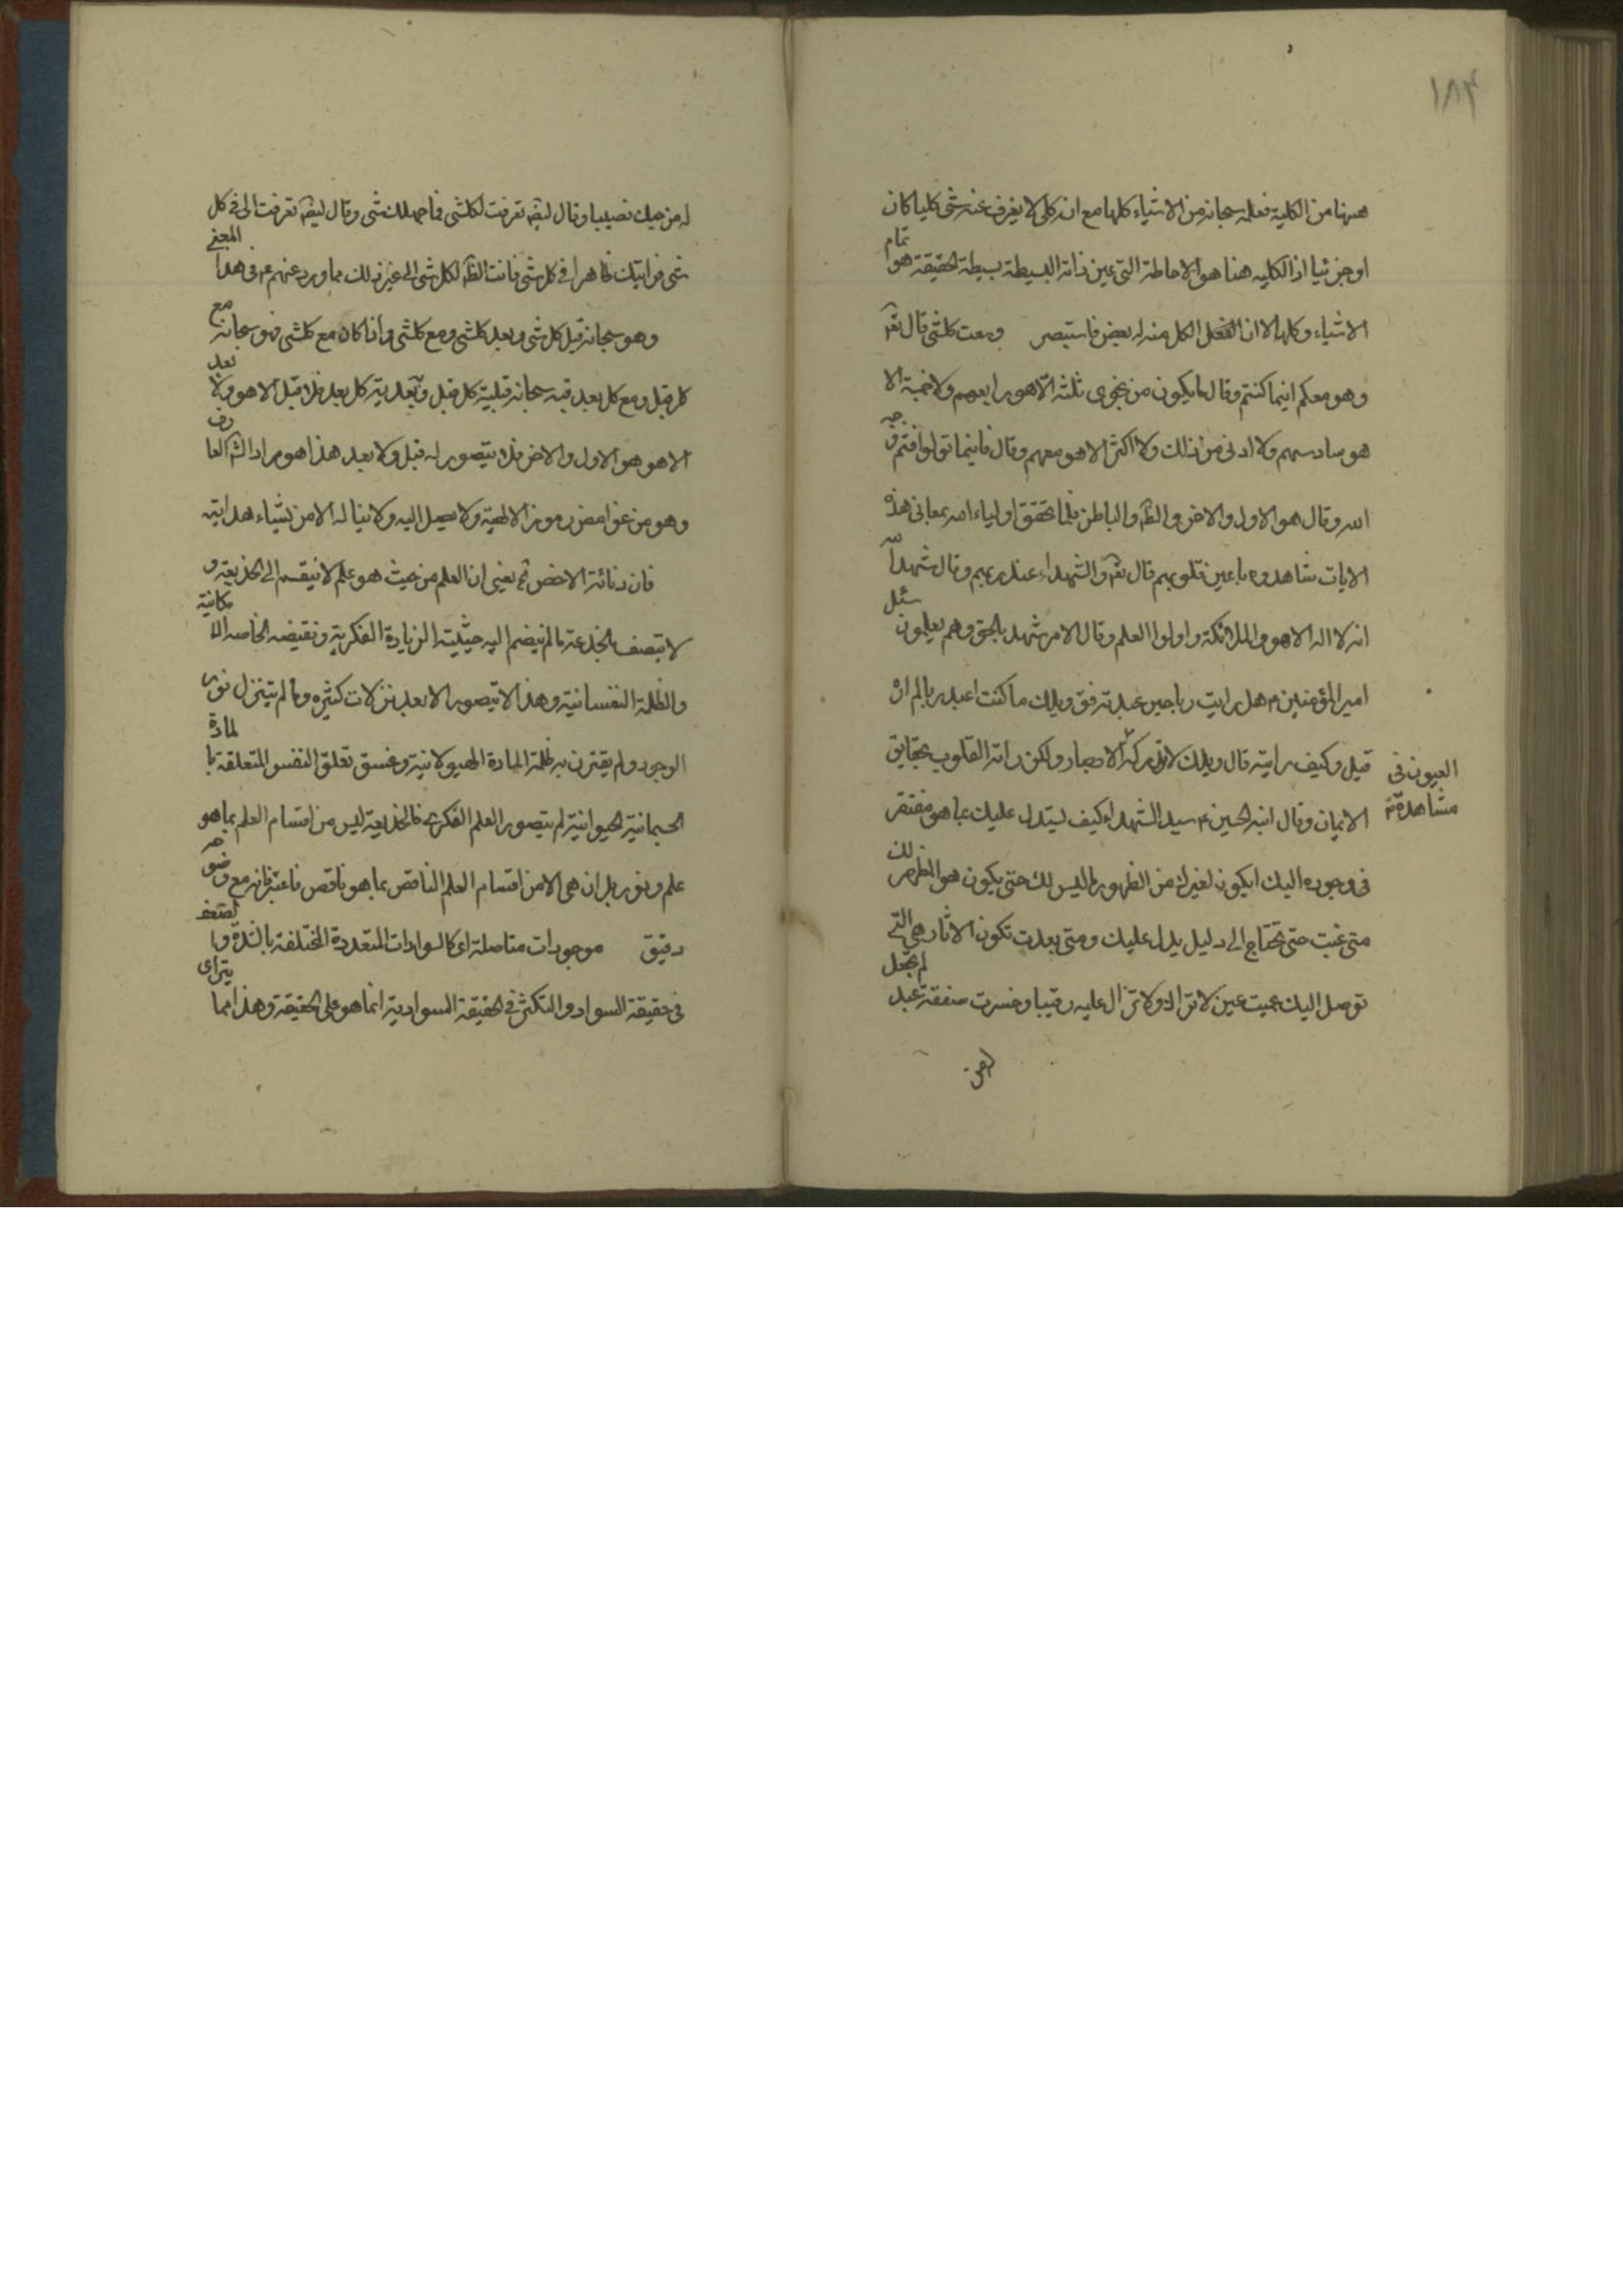 ١٨٤
ههنا من الكلية فعلمه سبحانه من الاشياء كلها مع انه كلى لا يغرب عنه شى كليا كان
او جزئيا اذ الكليه هنا هو الاحاطة التى عين ذاته البسيطة بسيطة الحقيقة هو تمام
الاشياء وكلها الا ان الكل منه له بعض فاستبصر وسعت كلشى قال تعه
وهو معكم اينما كنتم وقال ما يكون من نجوى ثلثه الّا هو رابعهم ولا خمسة الا
هو سادسهم ولا ادنى من ذلك ولا اكثر الا هو معهم وقال فاينما تولوا فثم وجه
الله وقال هو الاول والاخر والظه والباطن فلما تحقق اولياء الله بمعانى هذه
الايات شاهدوه باعين قلوبهم قال تعه والشهداء عند ربهم وقال شهد الله
انه لا اله الا هو والملائكة واولوا العلم وقال الا من شهد بالحق وهم يعلمون سئل
امير المؤمنين ع هل رايت ربك حين عبدته فق ويلك ما كنت اعبد ربا لم اره
قيل وكيف رايته قال ويلك لا تدركه العيون فى مشاهدة الابصار ولكن راته القلوب بحقايق
الايمان وقال ابنه الحسين ع سيد الشهداء كيف يستدل عليك بما هو مفتقر
فى وجوده اليك ايكون لغيرك من الظهور ما ليس لك حتى يكون هو المظهر لك
متى غبت حتى تحتاج الى دليل يدل عليك ومتى بعدت تكون الاثار هى التى
توصل اليك عميت عين لا تراك ولا تزال عليه رقيبا وخسرت صفقة عبد لم تجعل
له من حبك نصيبا وقال ايضه تعرفت لكلشى فما جهلك شى وقال ايضه تعرفت الى فى كل
شى فرايتك ظاهرا فى كل شى فانت الظه لكل شى الى غير ذلك مما ورد عنهم ع فى هذا المعنى
وهو سبحانه قبل كل شى وبعد كلشى ومع كلشى واذا كان مع كلشى فهو سبحانه مع
كل قبل ومع كل بعد فبه سبحانه قبلية كل قبل وبعدية كل بعد فلا قبل الا هو ولا بعد
الا هو هو الاول والاخر فلا يتصور له قبل ولا بعد هذا هو مراد الش العارف
وهو من غوامض رموز الالهية ولا يصل اليه ولا يناله الا من يشاء هدايته
فان دنائة الاخس ثم يعنى ان العلم من حيث هو علم لا ينقسم الى الخديعة و
لا يتصف بالخدعة ما لم ينضم اليه حيثية الزيادة الفكرية ونقيضه الخاصه الامكانية
والظلمة النفسانية وهذا لا يتصور الا بعد نزلات كثيره وما لم يتنزل نور
الوجود ولم يقترن به ظلمة المادة الهيولانية وغسق تعلق النفس المتعلقة بالمادة
الجسمانية الحيوانية لم يتصور العلم الفكرى فالخديعة ليس من اقسام العلم بما هو
علم ونور بل ان هى الا من اقسام العلم الناقص بما هو ناقص فاعتبر فانه مع وضوحه
دقيق موجودات متاصلة اى كالسوادات المتعددة المختلفة بالشدة والضعف
فى حقيقة السواد والتكثر فى الحقيقة السوادية انما هو على الحقيقة وهذا مما يترأى